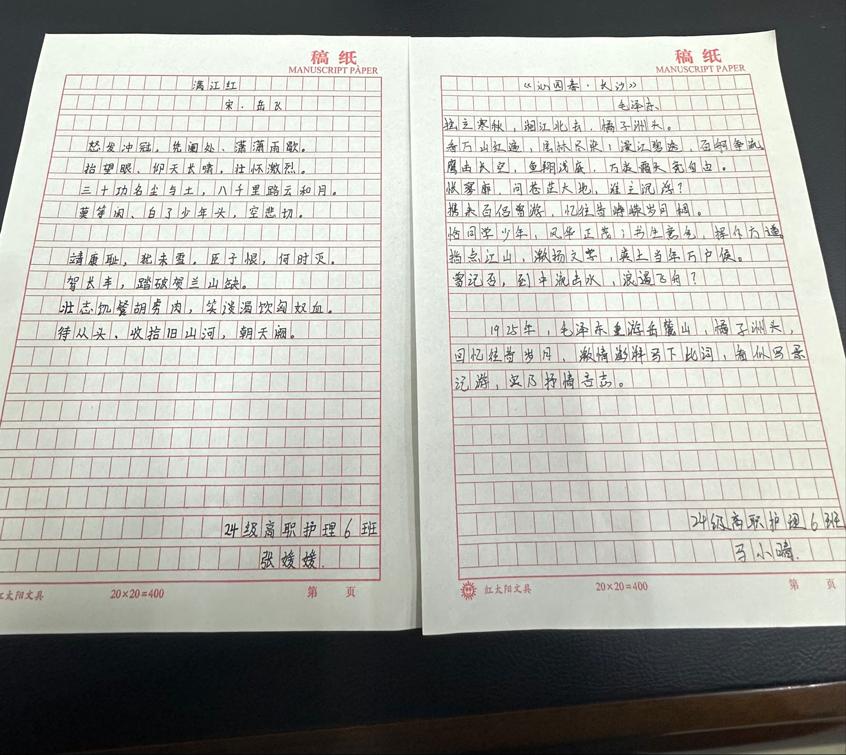 稿纸
MANUSCRIPT PAPER
满江红
宋·岳飞
怒发冲冠，凭阑处、潇潇雨歇。
抬望眼、仰天长啸，壮怀激烈。
三十功名尘与土，八千里路云和月。
莫等闲、白了少年头，空悲切。
靖康耻，犹未雪。臣子恨，何时灭。
驾长车，踏破贺兰山缺。
壮志饥餐胡虏肉，笑谈渴饮匈奴血。
待从头、收拾旧山河，朝天阙。
24级高职护理6班
张媛媛.
红太阳文具 20×20=400 第 页
稿纸
MANUSCRIPT PAPER
《沁园春·长沙》
毛泽东.
独立寒秋，湘江北去，橘子洲头。
看万山红遍，层林尽染；漫江碧透，百舸争流
鹰击长空，鱼翔浅底，万类霜天竞自由。
怅寥廓，问苍茫大地，谁主沉浮？
携来百侣曾游，忆往昔峥嵘岁月稠。
恰同学少年，风华正茂；书生意气，挥斥方遒
指点江山，激扬文字，粪土当年万户侯。
曾记否，到中流击水，浪遏飞舟？
1925年，毛泽东重游岳麓山，橘子洲头，
回忆往昔岁月，激情澎湃写下此词，看似写景
记游，实乃抒情言志。
24级高职护理6班
马小晴.
红太阳文具 20×20=400 第 页